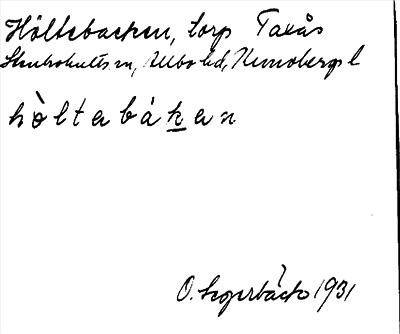 Höltebacken, torp Taxås
Stenbrohults sn, Allbo hd, Kronobergs l
hòltabákan
O. Segerbäck 1931